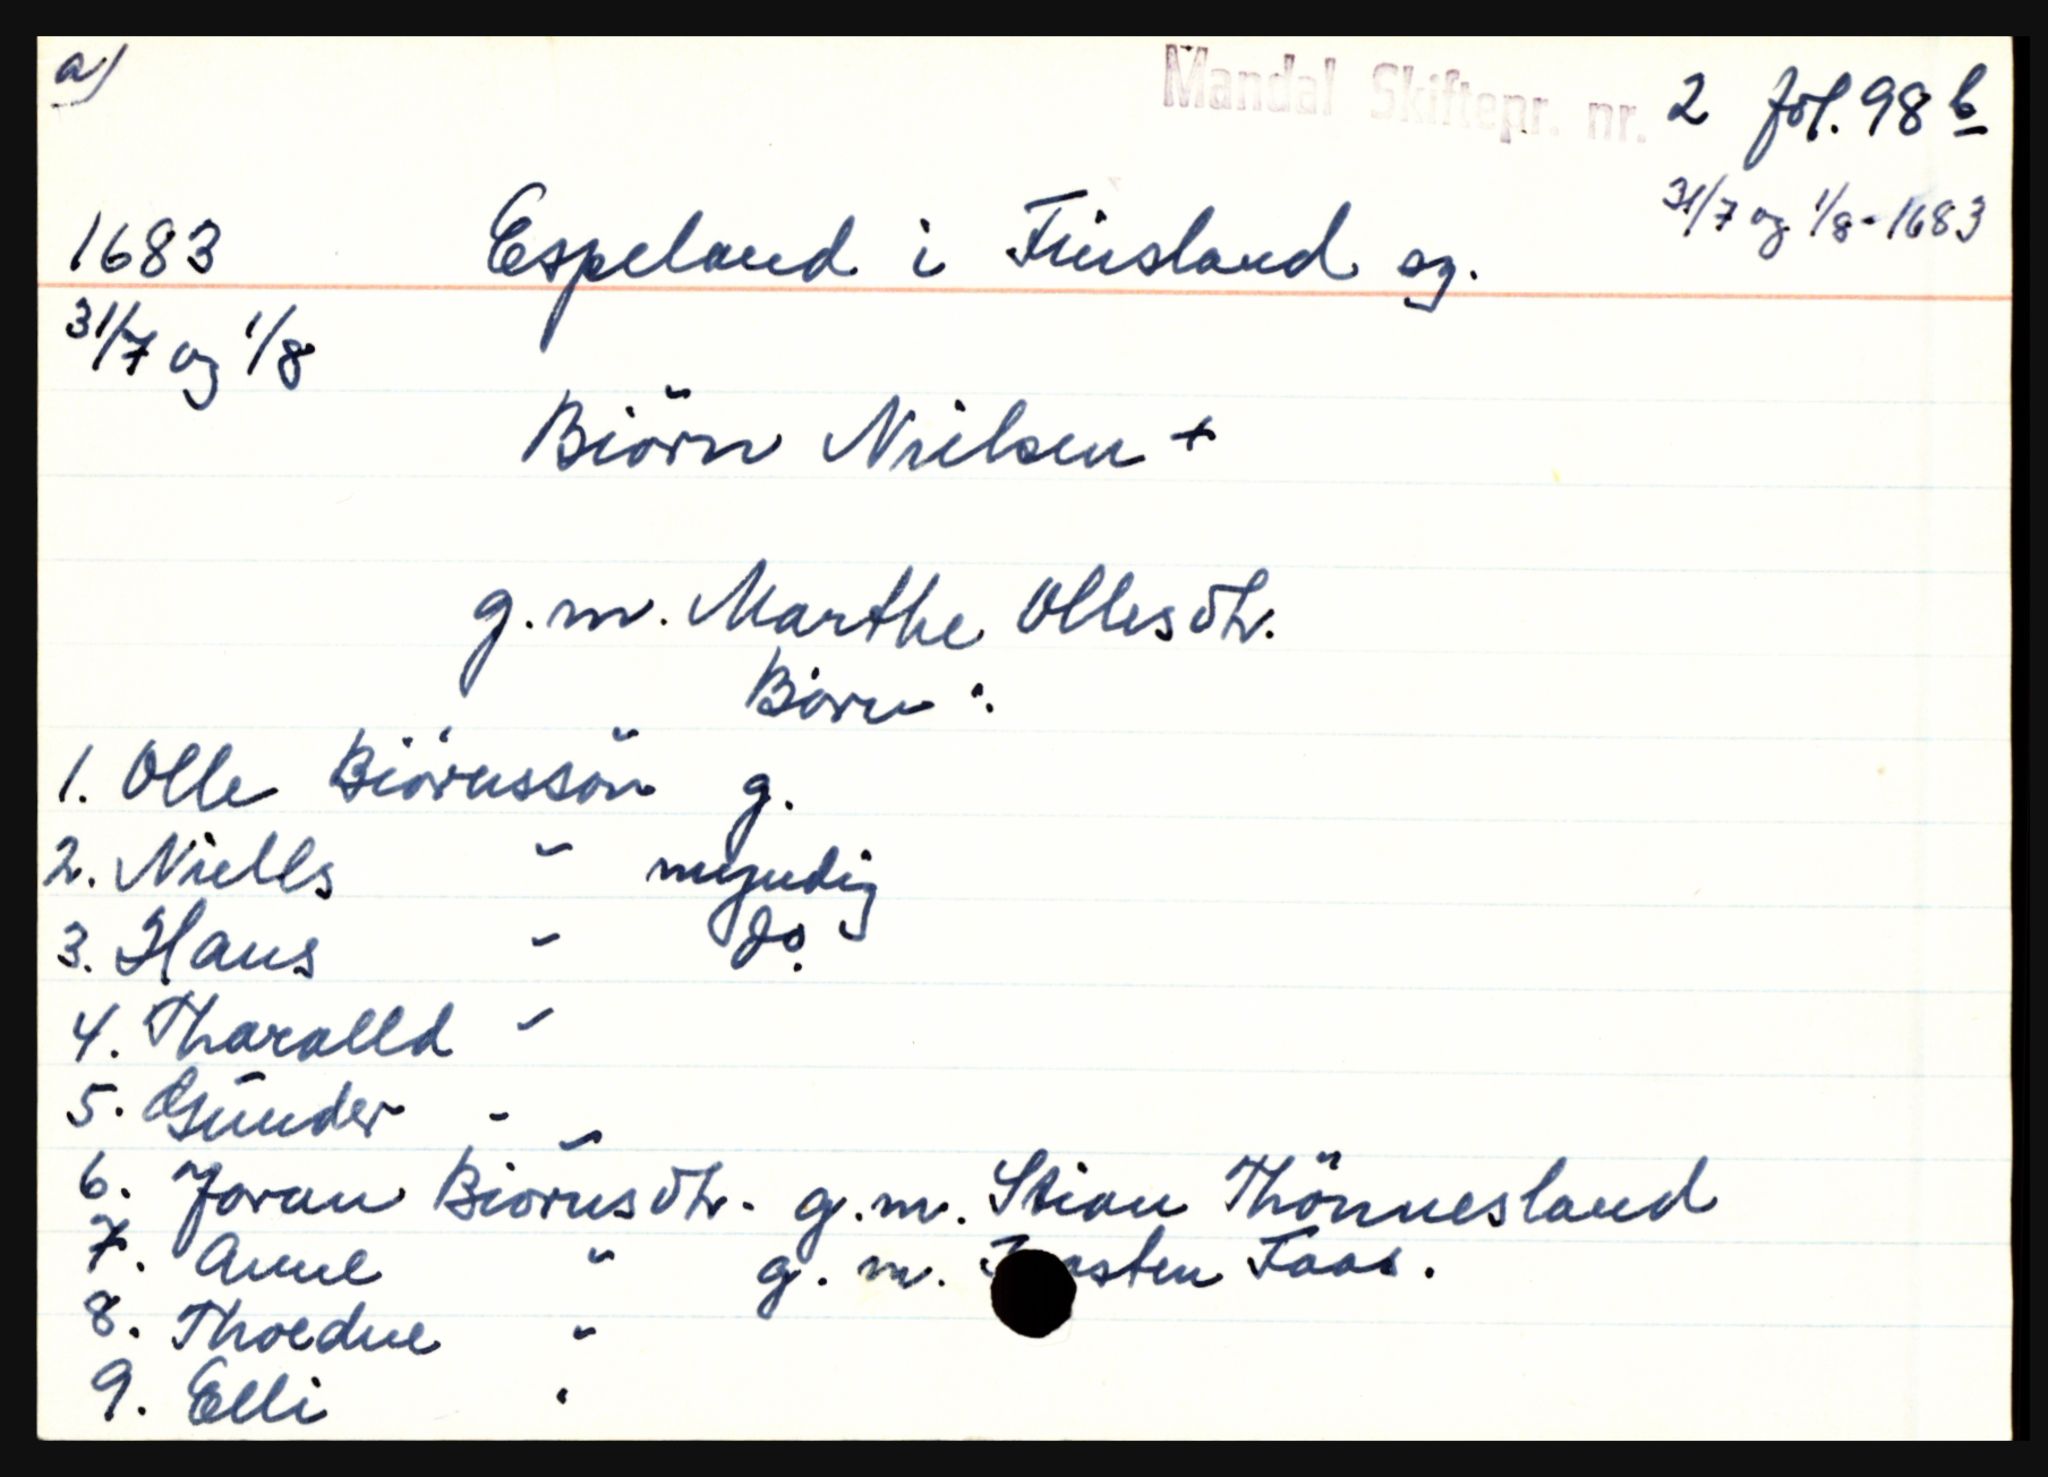 a)
Mandal Skiftepr. nr. 2 fol. 98 b
31/7 og 1/8 - 1683
1683 Espeland i Finsland sg.
31/7 og 1/8
Biörn Nielsen +
g.m. Marthe Ollesdtr.
Börn:
1. Olle Biörnssön g.
2. Niells " myndig
3. Hans " do.
4. Tharalld "
5. Gunder "
6. Joran Biörnsdtr. g.m. Stian Thönnesland
7. Anne " g.m. Faas.
8. Thordne "
9. Elli "